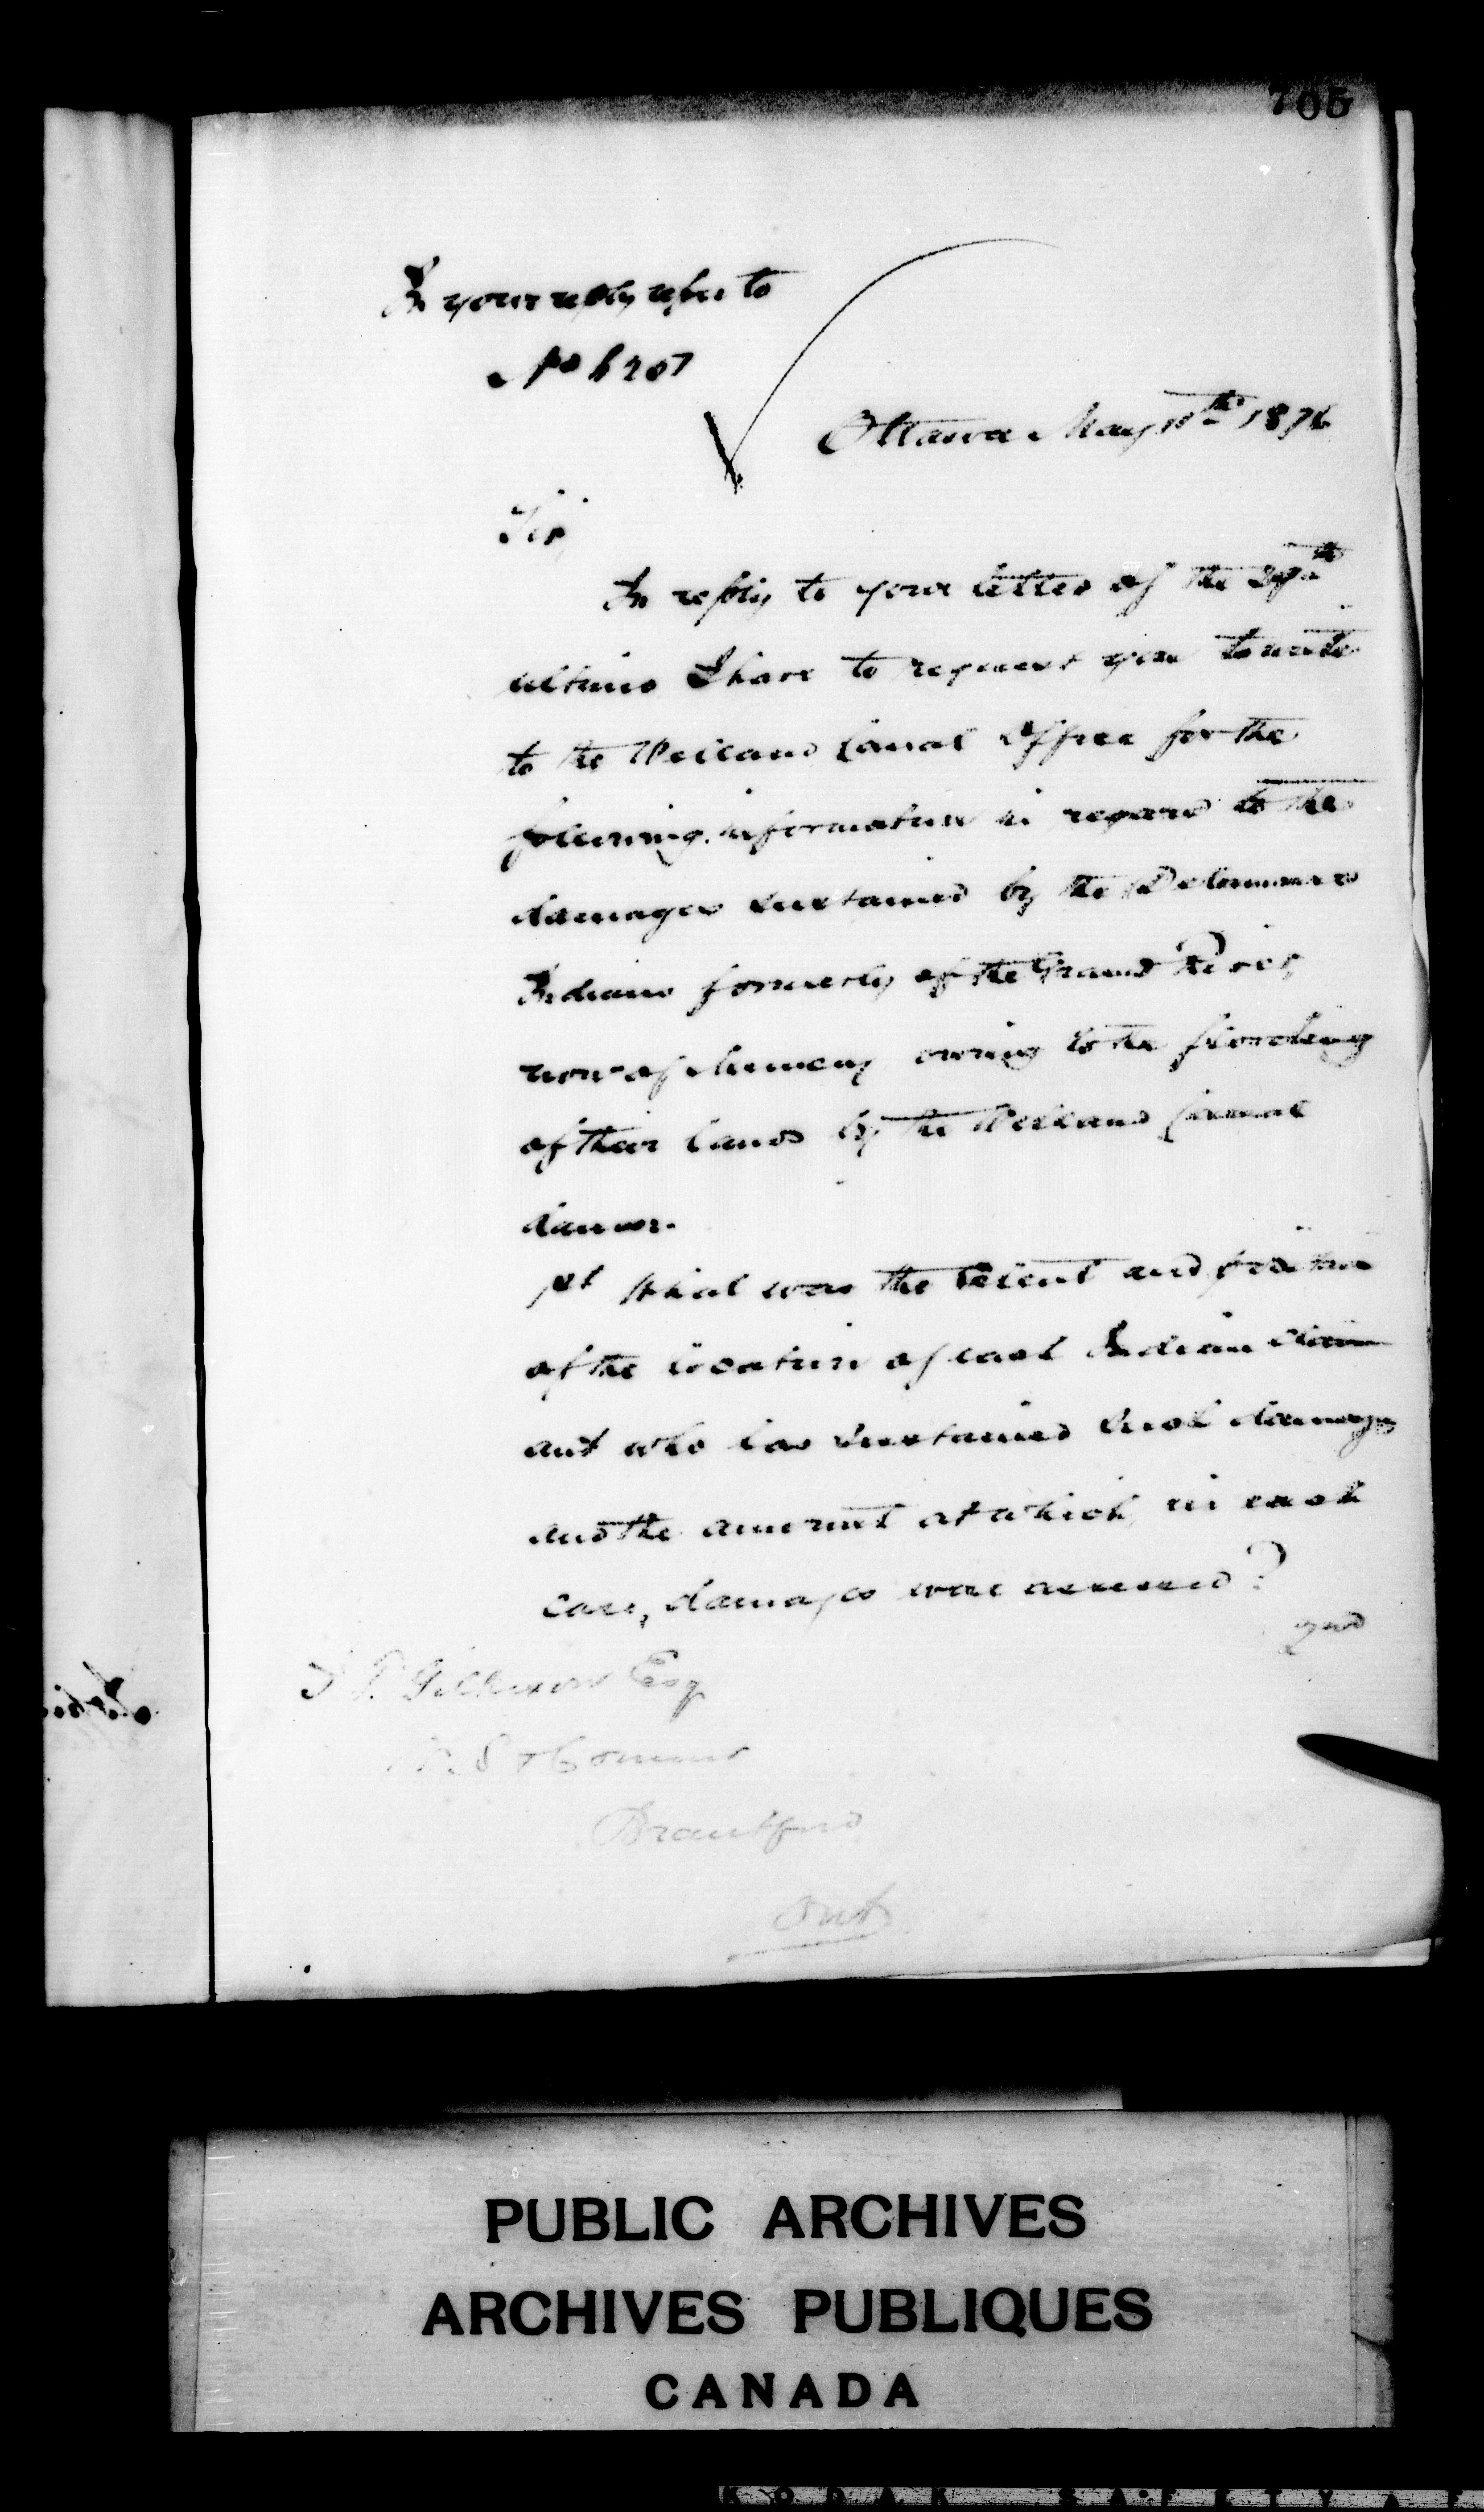 705
In your reply refer to
No 6207
Ottawa May 11th 1876
Sir,
In reply to your letter of the 29th
ultimo I have to request you to write
to the Welland Canal Office for the
following information in regard to the
damages sustained by the Delaware
Indians formerly of the Grand River,
now of Muncey owing to the flooding
of their lands by the Welland Canal
dam.
1st What was the extent and position
of the location of each Indian claim
ant who has sustained such damages
and the amount at which, in each
case, damages were assessed?
2nd
J. T. Gilkison Esq
V. S. & Commr
Brantford
Ont
PUBLIC ARCHIVES
ARCHIVES PUBLIQUES
CANADA